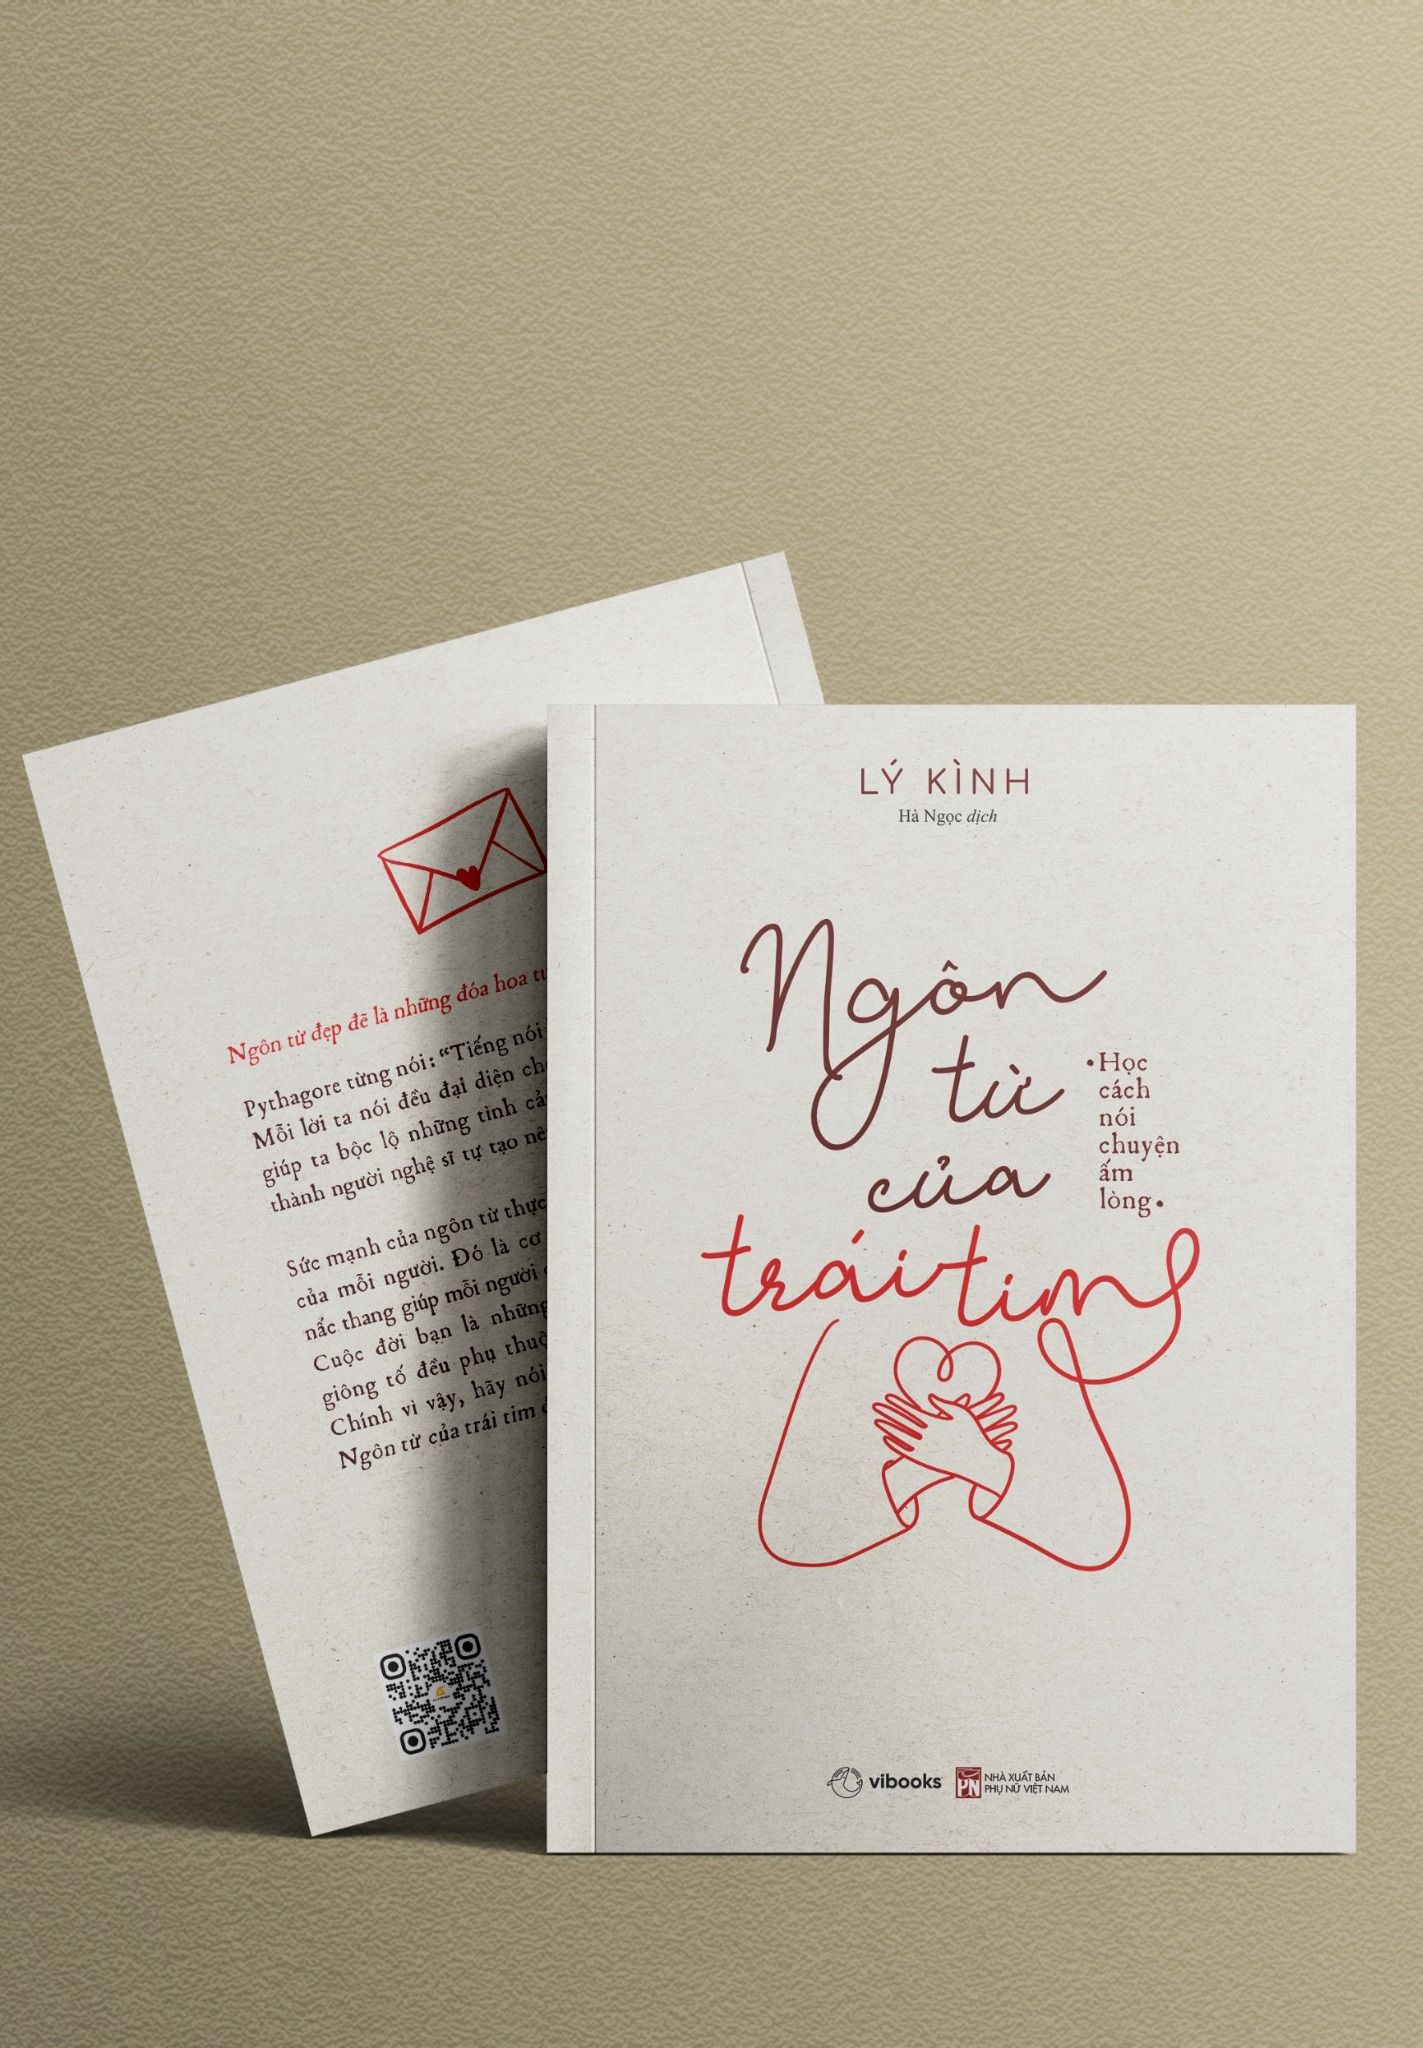 LÝ KÌNH
Hà Ngọc dịch
Ngôn
từ
của
trái tim
•Học
cách
nói
chuyện
ấm
lòng•
vibooks
PN
NHÀ XUẤT BẢN
PHỤ NỮ VIỆT NAM
Ngôn từ đẹp đẽ là những đóa hoa
Pythagore từng nói: “Tiếng nói
Mỗi lời ta nói đều đại diện
giúp ta bộc lộ những tình
thành người nghệ sĩ tự tạo
Sức mạnh của ngôn từ thực
của mỗi người. Đó là cơ
nấc thang giúp mỗi người
Cuộc đời bạn là những
giông tố đều phụ
Chính vì vậy, hãy nói
Ngôn từ của trái tim